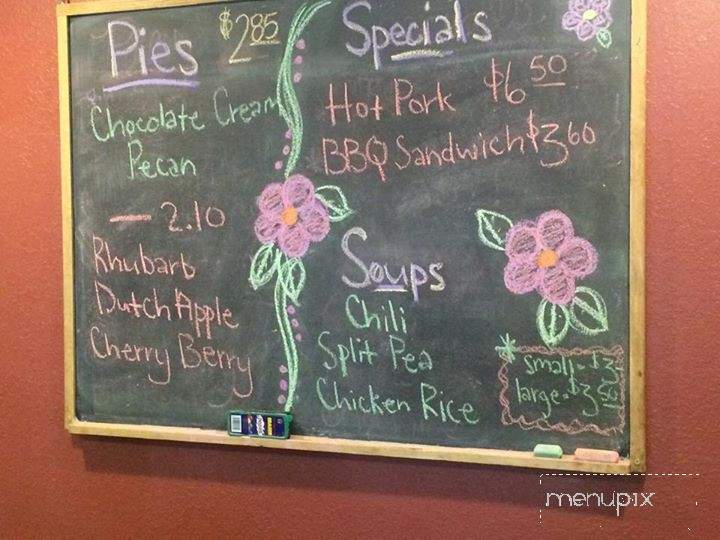 Pies $2.85
Chocolate Cream
Pecan
— 2.10
Rhubarb
Dutch Apple
Cherry Berry
Specials
Hot Pork $6.50
BBQ Sandwich $3.60
Soups
Chili
Split Pea
Chicken Rice
* small - $3-
large - $3.50
menupix